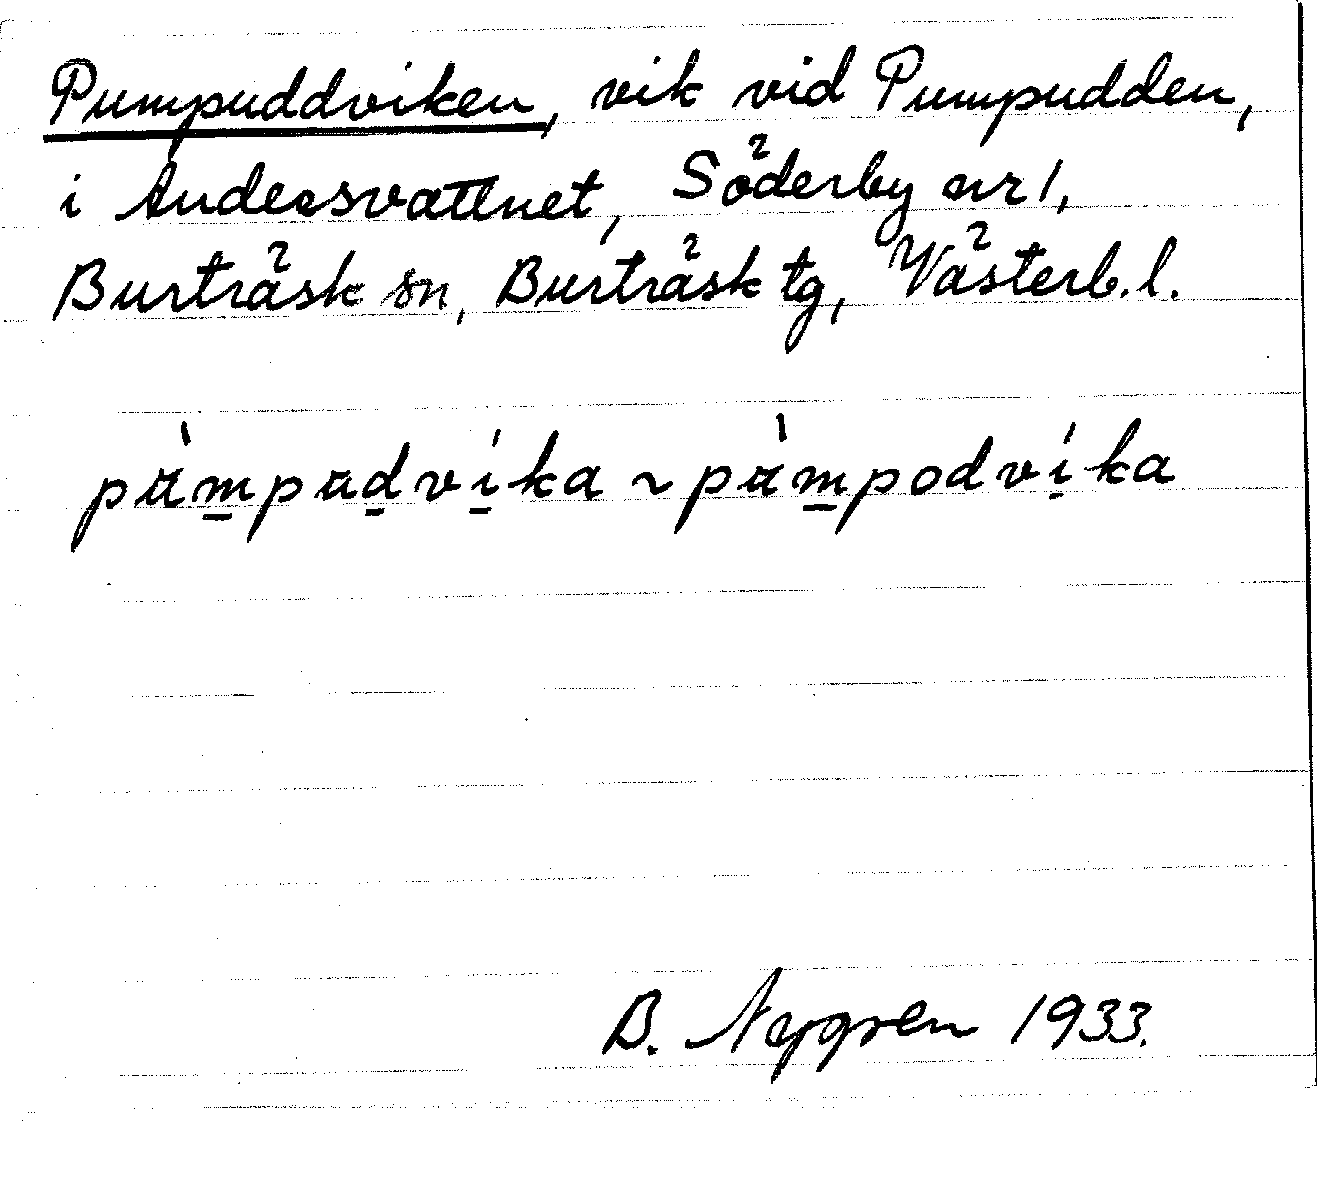 Pumpuddviken, vik vid Pumpudden,
i Andersvattnet, Söderby nr 1,
Burträsk sn, Burträsk tg, Västerb. l.
pʉ̀m̲pʉd̲ví̲ka ~ pʉ̀m̲podví̲ka
B. Nygren 1933.